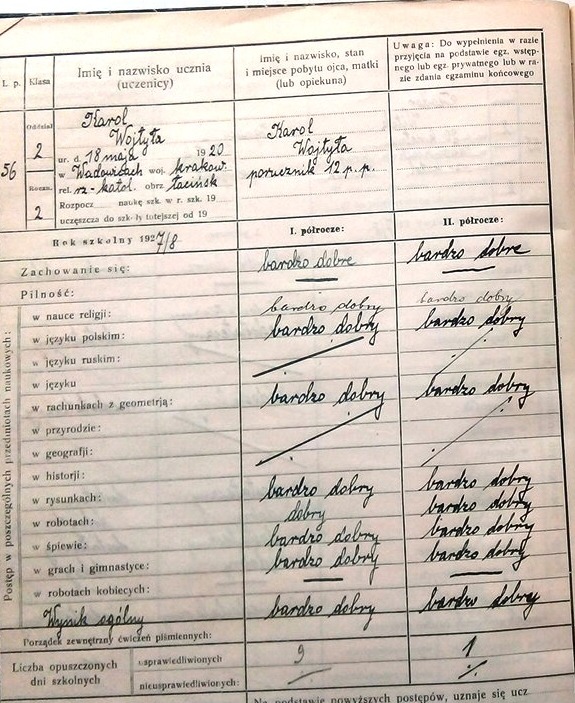 L. p.
Klasa
Imię i nazwisko ucznia
(uczenicy)
Imię i nazwisko, stan
i miejsce pobytu ojca, matki
(lub opiekuna)
Uwaga: Do wypełnienia w razie
przyjęcia na podstawie egz. wstęp-
nego lub egz. prywatnego lub w ra-
zie zdania egzaminu końcowego
56
Oddział
2
Roczn.
2
Karol
Wojtyła
ur. d. 18 maja 1920
w Wadowicach woj. krakow.
rel. rz-katol. obrz. łacińsk
Rozpocz naukę szk. w r. szk. 19
uczęszcza do szkoły tutejszej od 19
Karol
Wojtyła
porucznik 12 p.p.
Rok szkolny 1927/8
I. półrocze:
II. półrocze:
Zachowanie się: bardzo dobre bardzo dobre
Pilność:
Postęp w poszczególnych przedmiotach naukowych:
w nauce religji: bardzo dobry bardzo dobry
w języku polskim: bardzo dobry bardzo dobry
w języku ruskim:
w języku
w rachunkach z geometrją: bardzo dobry bardzo dobry
w przyrodzie:
w geografji:
w historji:
w rysunkach: bardzo dobry bardzo dobry
w robotach: dobry bardzo dobry
w śpiewie: bardzo dobry bardzo dobry
w grach i gimnastyce: bardzo dobry bardzo dobry
w robotach kobiecych:
Wynik ogólny bardzo dobry bardzo dobry
Porządek zewnętrzny ćwiczeń piśmiennych:
Liczba opuszczonych
dni szkolnych
usprawiedliwionych 9 1
nieusprawiedliwionych:
Na podstawie powyższych postępów, uznaje się ucz